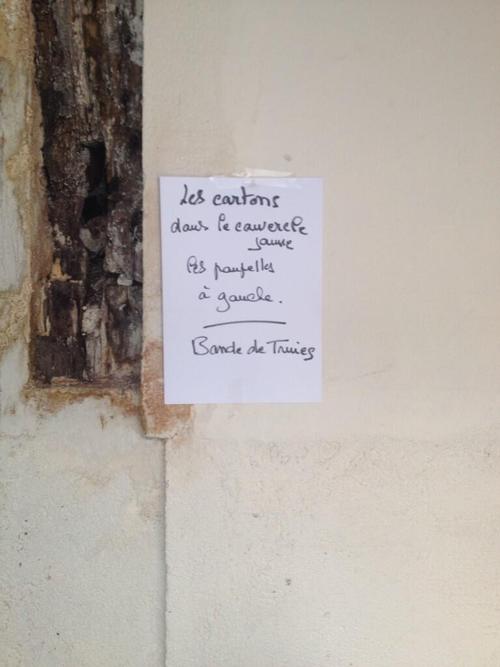 Les cartons
dans le couvercle
jaune
les poubelles
à gauche.
Bande de Truies